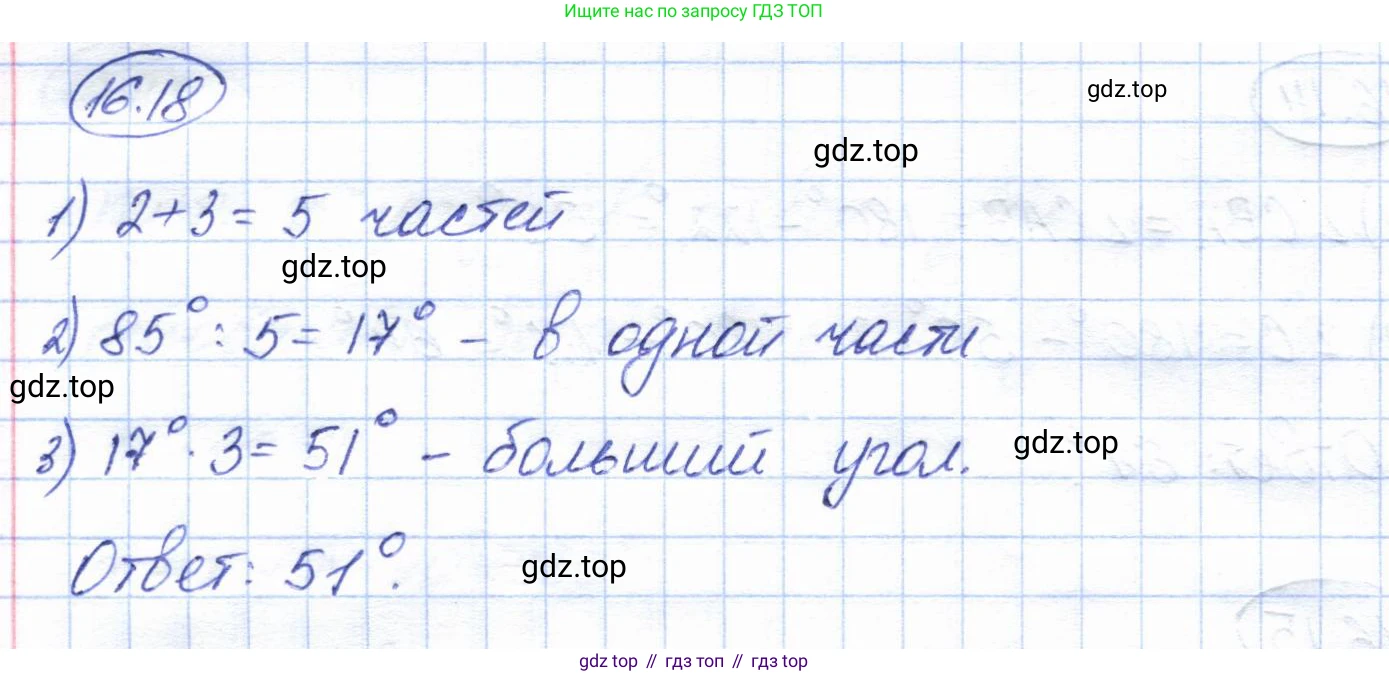 Ищите нас по запросу ГДЗ ТОП
16.18
gdz.top
gdz.top
1) 2+3= 5 частей
gdz.top
2) 85° : 5= 17° - в одной части
gdz.top
3) 17° · 3= 51° - больший угол.
gdz.top
Ответ: 51°.
gdz.top
gdz top // гдз топ // гдз top